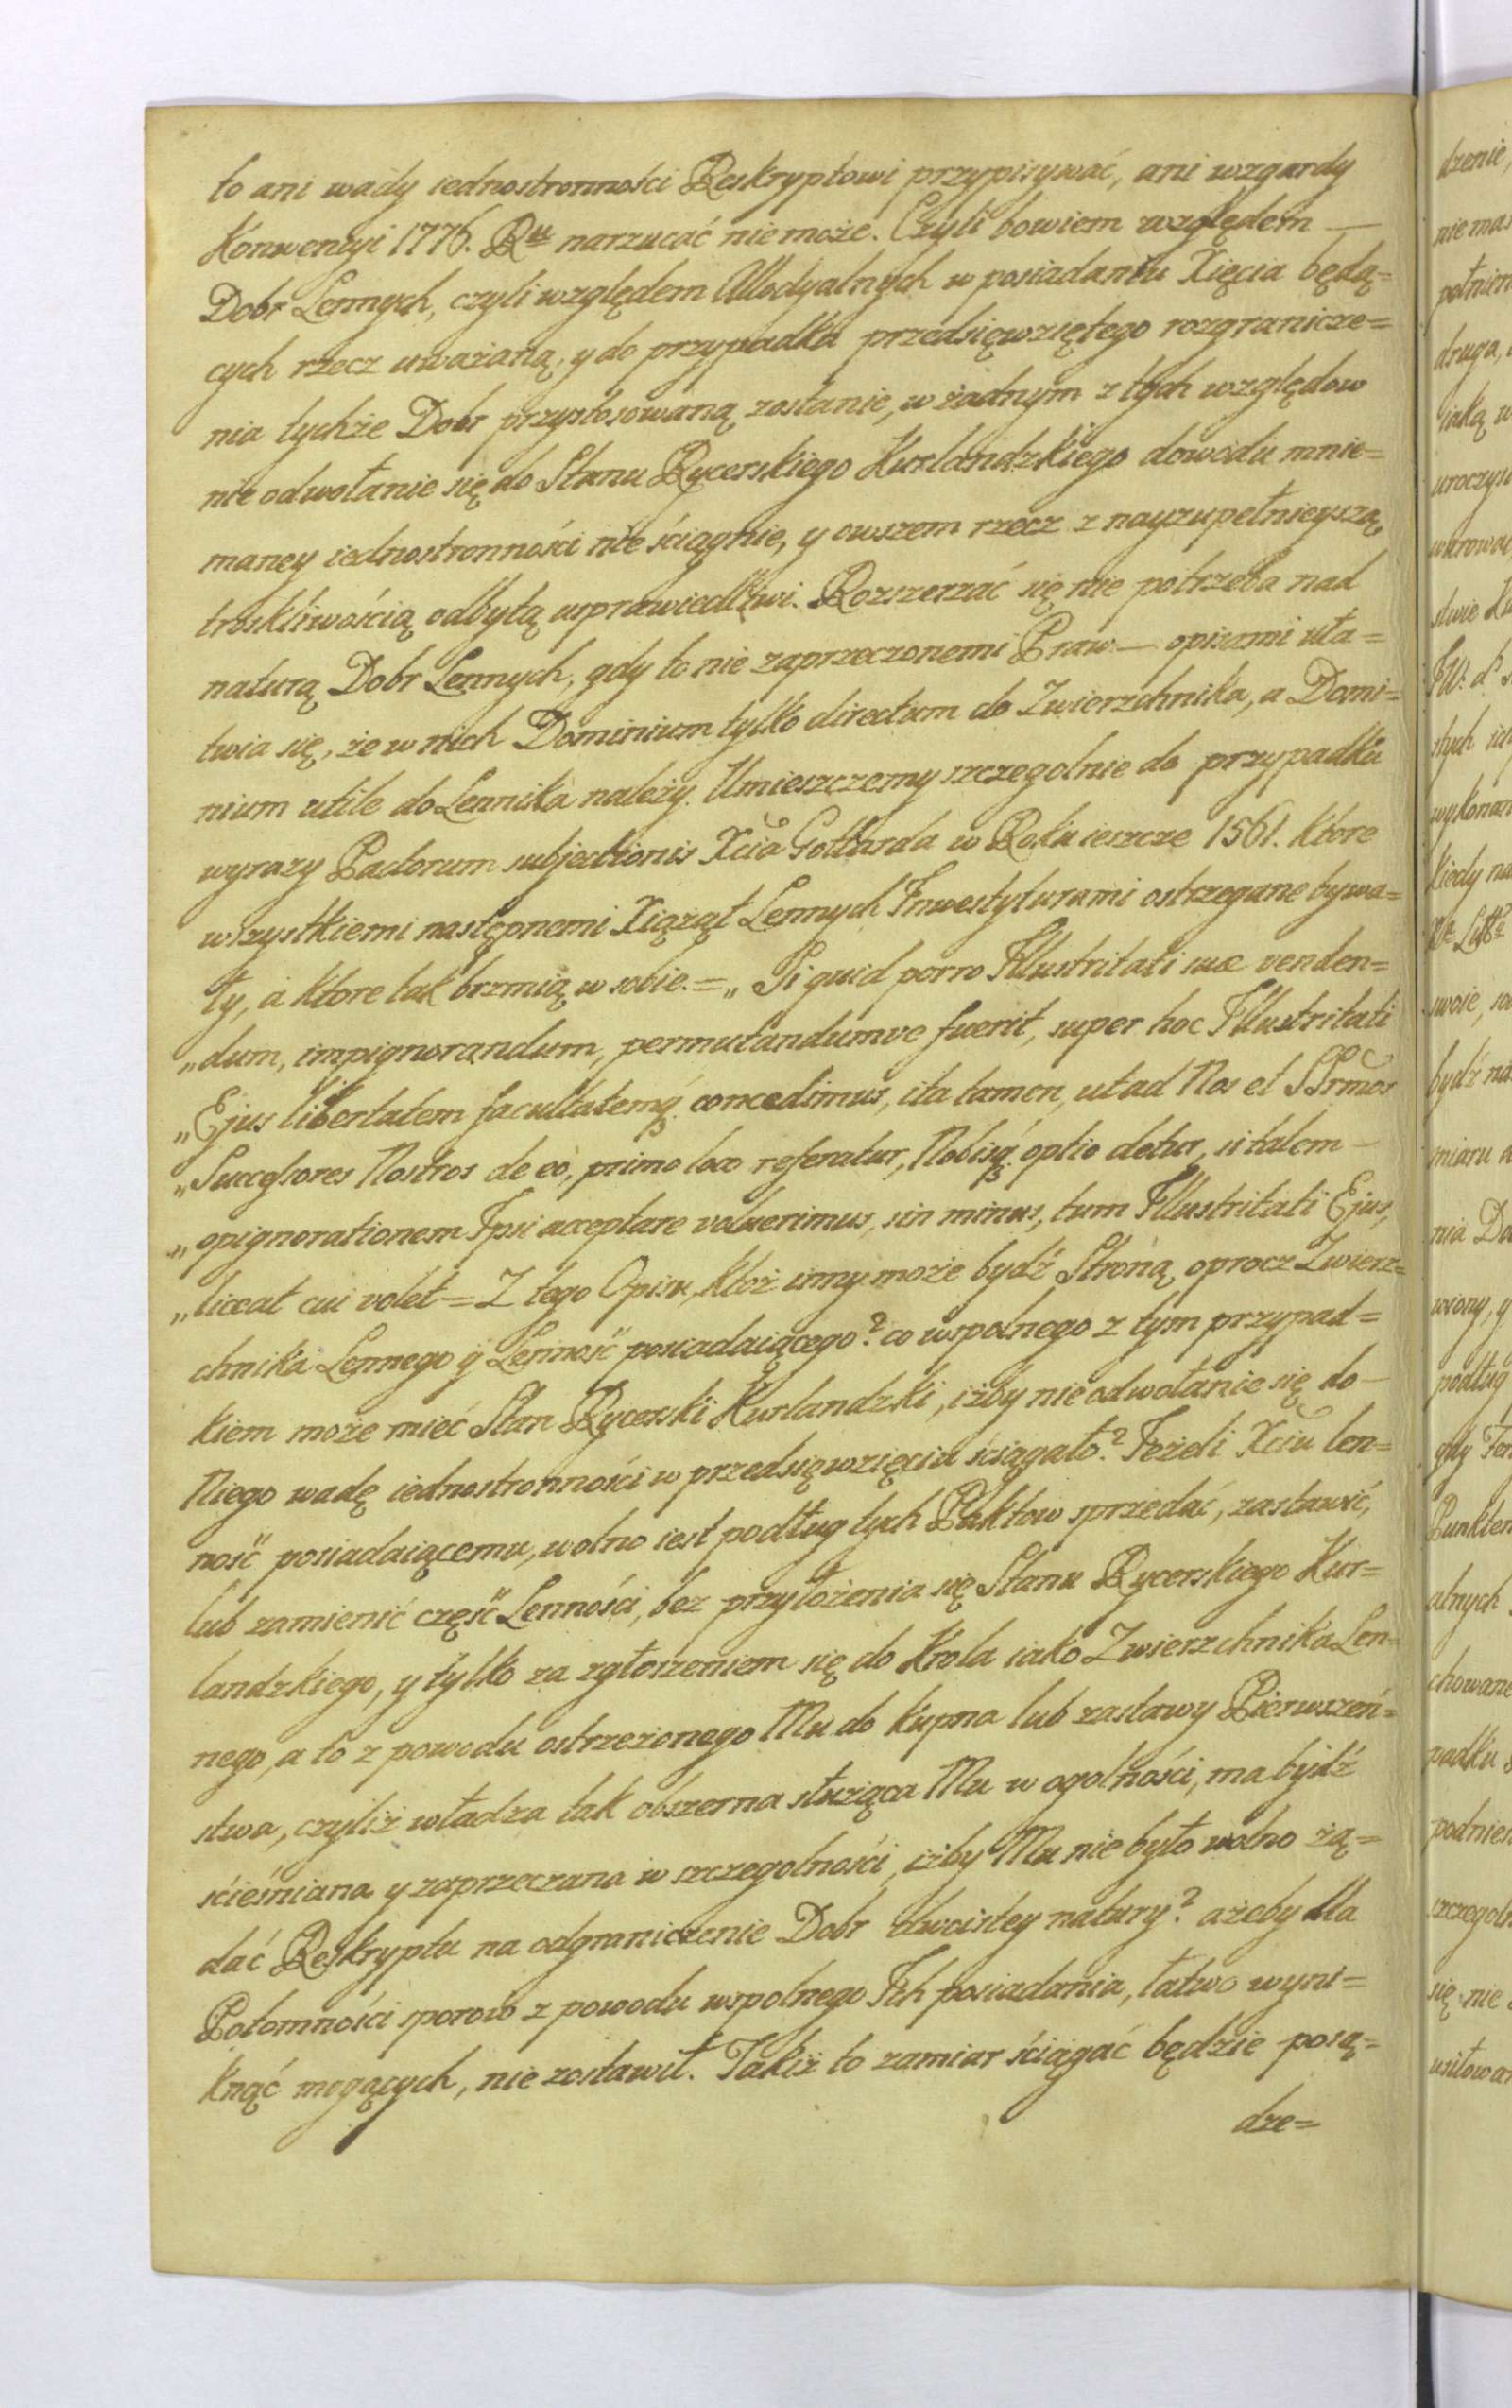 to ani wady iednostronności Reskryptowi przypisywać, ani wzgardy
Konwencyi 1776. Ru narzucać nie może. Czyli bowiem względem —
Dobr Lennych, czyli względem Allodyalnych w posiadaniu Xięcia będą=
cych rzecz uważaną, y do przypadku przedsięwziętego rozgranicze=
nia tychże Dobr przystosowaną zostanie, w żadnym z tych względow
nie odwołanie się do Stanu Rycerskiego Kurlandzkiego dowodu mnie=
maney iednostronności nie ściągnie, y owszem rzecz z nayzupełnieyszą
troskliwością odbytą usprawiedliwi. Rozszerzać się nie potrzeba nad
naturą Dobr Lennych, gdy to nie zaprzeczonemi Praw — opisami uła=
twia się, że w nich Dominium tylko directum do Zwierzchnika, a Domi=
nium utile do Lennika należy. Umieszczemy szczegolnie do przypadku
wyrazy Pactorum subjectionis Xcia Gottarda w Roku ieszcze 1561. ktore
wszystkiemi następnemi Xiążąt Lennych Inwestyturami ostrzegane bywa=
ły, a ktore tak brzmią w sobie. = „Si quid porro Illustritati suæ venden=
„dum, impignorandum, permutandumve fuerit, super hoc Illustritati
„Ejus libertatem facultatemq; concedimus, ita tamen, ut ad Nos et SSrmos
„Successores Nostros de eo, primo loco referatur, Nobisq; optio detur, si talem —
„opignorationem Ipsi acceptare voluerimus, sin minus, tum Illustritati Ejus,
„liceat cui volet = Z tego Opisu, ktoż inny może bydź Stroną, oprocz Zwierz=
chnika Lennego y Lenność posiadaiącego? co wspolnego z tym przypad=
kiem może mieć Stan Rycerski Kurlandzki, iżby nie odwołanie się do —
Niego wadę iednostronności w przedsięwzięciu ściągało? Jeżeli Xciu len=
ność posiadaiącemu, wolno iest podług tych Paktow sprzedać, zastawić,
lub zamienić część Lenności, bez przyłożenia się Stanu Rycerskiego Kur=
landzkiego, y tylko za zgłoszeniem się do Krola iako Zwierzchnika Len=
nego, a to z powodu ostrzeżonego Mu do kupna lub zastawy Pierwszeń=
stwa, czyliż władza tak obszerna służąca Mu w ogolności, ma bydź
ścieśniana y zaprzeczana w szczegolności, iżby Mu nie było wolno żą=
dać Reskryptu na odgraniczenie Dobr dwoistey natury? ażeby dla
Potomności sporow z powodu wspolnego Ich posiadania, łatwo wyni=
knąć mogących, nie zostawił. Takiż to zamiar ściągać będzie posą=
dze=